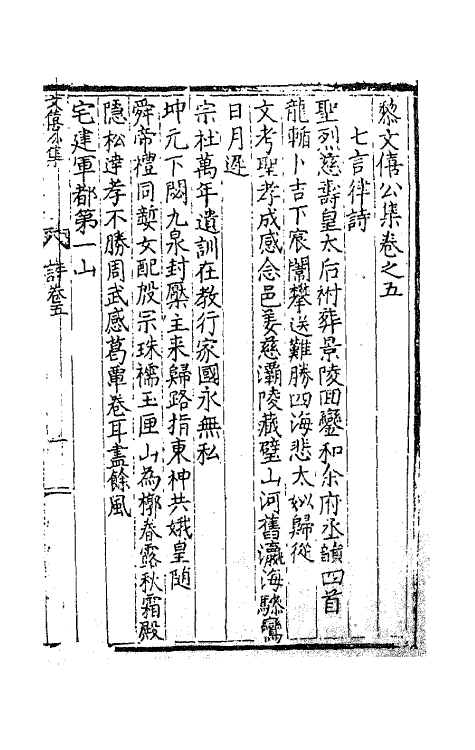 黎文僖公集卷之五
七言律詩
聖烈慈壽皇太后祔葬景陵回鑾和余府丞韻四首
龍輴卜吉下宸闈攀送難勝四海悲太姒歸從
文考聖孝成感念邑姜慈灞陵藏璧山河舊瀛海驂鸞
日月遲
宗社萬年遺訓在教行家國永無私
坤元下閟九泉封厭主來歸路指東神共娥皇随
舜帝禮同嫠女配殷宗珠襦玉匣山為槨春露秋霜殿
隱松達孝不勝周武感葛覃卷耳盡餘風
宅建軍都第一山
文僖公集
詩卷五
一